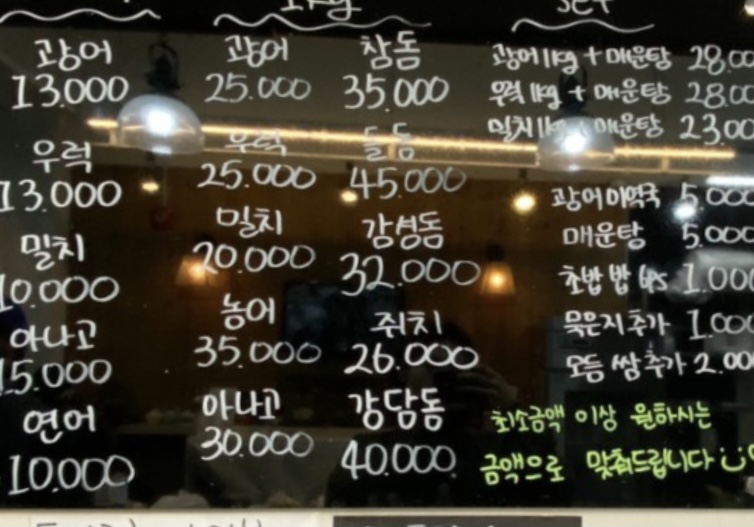 1kg
set
광어
13.000
우럭
13.000
밀치
10.000
아나고
15.000
연어
10.000
광어
25.000
우럭
25.000
밀치
20.000
농어
35.000
아나고
30.000
참돔
35.000
돌돔
45.000
감성돔
32.000
쥐치
26.000
강담돔
40.000
광어1kg + 매운탕 28.00
우럭 1kg + 매운탕 28.00
밀치1kg + 매운탕 23.00
광어미역국 5.000
매운탕 5.000
초밥 밥 6ps 1.000
묵은지추가 1.000
모듬 쌈추가 2.00
최소금액 이상 원하시는
금액으로 맞춰드립니다